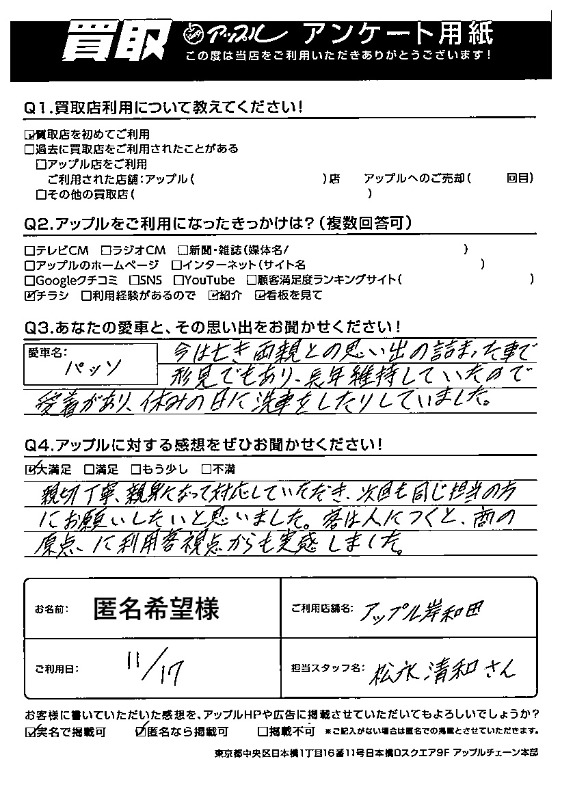 買取 アップル アンケート用紙
この度は当店をご利用いただきありがとうございます!
Q1.買取店利用について教えてください!
☑買取店を初めてご利用
□過去に買取店をご利用されたことがある
□アップル店をご利用
ご利用された店舗:アップル( )店 アップルへのご売却( 回目)
□その他の買取店( )
Q2.アップルをご利用になったきっかけは?(複数回答可)
□テレビCM □ラジオCM □新聞・雑誌(媒体名/ )
□アップルのホームページ □インターネット(サイト名 )
□Googleクチコミ □SNS □YouTube □顧客満足度ランキングサイト( )
☑チラシ □利用経験があるので ☑紹介 ☑看板を見て
Q3.あなたの愛車と、その思い出をお聞かせください!
愛車名:
パッソ
今は亡き両親との思い出の詰まった車で
形見でもあり、長年維持していたので
愛着があり、休みの日に洗車をしたりしていました。
Q4.アップルに対する感想をぜひお聞かせください!
☑大満足 □満足 □もう少し □不満
親切丁寧、親身になって対応していただき、次回も同じ担当の方
にお願いしたいと思いました。客は人につくと、商の
原点、に利用客視点からも実感しました。
お名前: 匿名希望様
ご利用店舗名: アップル岸和田
ご利用日: 11/17
担当スタッフ名: 松永清和さん
お客様に書いていただいた感想を、アップルHPや広告に掲載させていただいてもよろしいでしょうか?
☑実名で掲載可 ☑匿名なら掲載可 □掲載不可 ※ご記入がない場合は匿名での掲載とさせていただきます。
東京都中央区日本橋1丁目16番11号日本橋Dスクエア9F アップルチェーン本部